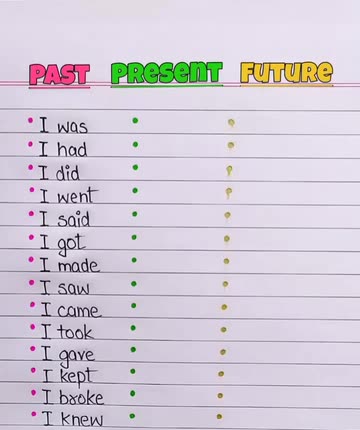 PAST PRESENT FUTURE
• I was • •
• I had • •
• I did • •
• I went • •
• I said • •
• I got • •
• I made • •
• I saw • •
• I came • •
• I took • •
• I gave • •
• I kept • •
• I broke • •
• I knew • •